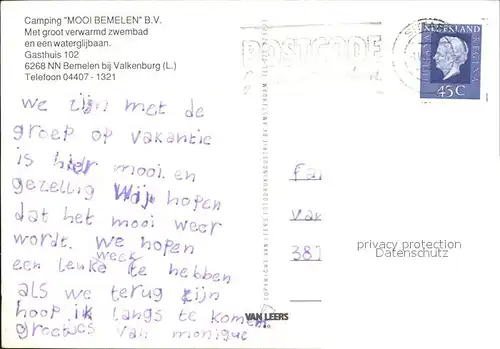 Camping "MOOI BEMELEN" B.V.
Met groot verwarmd zwembad
en een waterglijbaan.
Gasthuis 102
6268 NN Bemelen bij Valkenburg (L.)
Telefoon 04407 - 1321
we zijn met de
groep op vakantie
is hier mooi en
gezellig Wij hopen
dat het mooi weer
wordt. we hopen
week
een leuke te hebben
als we terug zijn
hoop ik langs te komen
groetjes van monique
VAN LEERS
POSTCODE
NEDERLAND
45 C
Fa
Va
381
privacy protection
Datenschutz